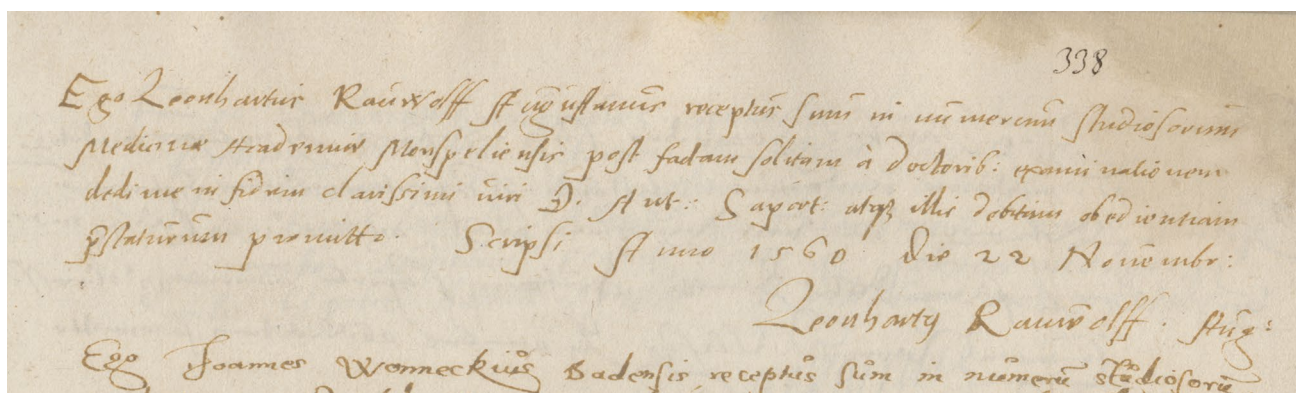 338
Ego Leonhartus Rauwolff Augustanus receptus sum in numerum studiosorum
Medicinæ Academiæ Monspeliensis post factam solitam à doctorib: examinationem
dedi me in fidem clarissimi viri D. Ant: Saport: atqꝫ illi debitam obedientiam
p̄staturum promitto. Scripsi Anno 1560 die 22 Novembr:
Leonhartꝰ Rauwolff. Aug:
Ego Joannes Wenneckius Badensis receptus sum in numerū studiosorū